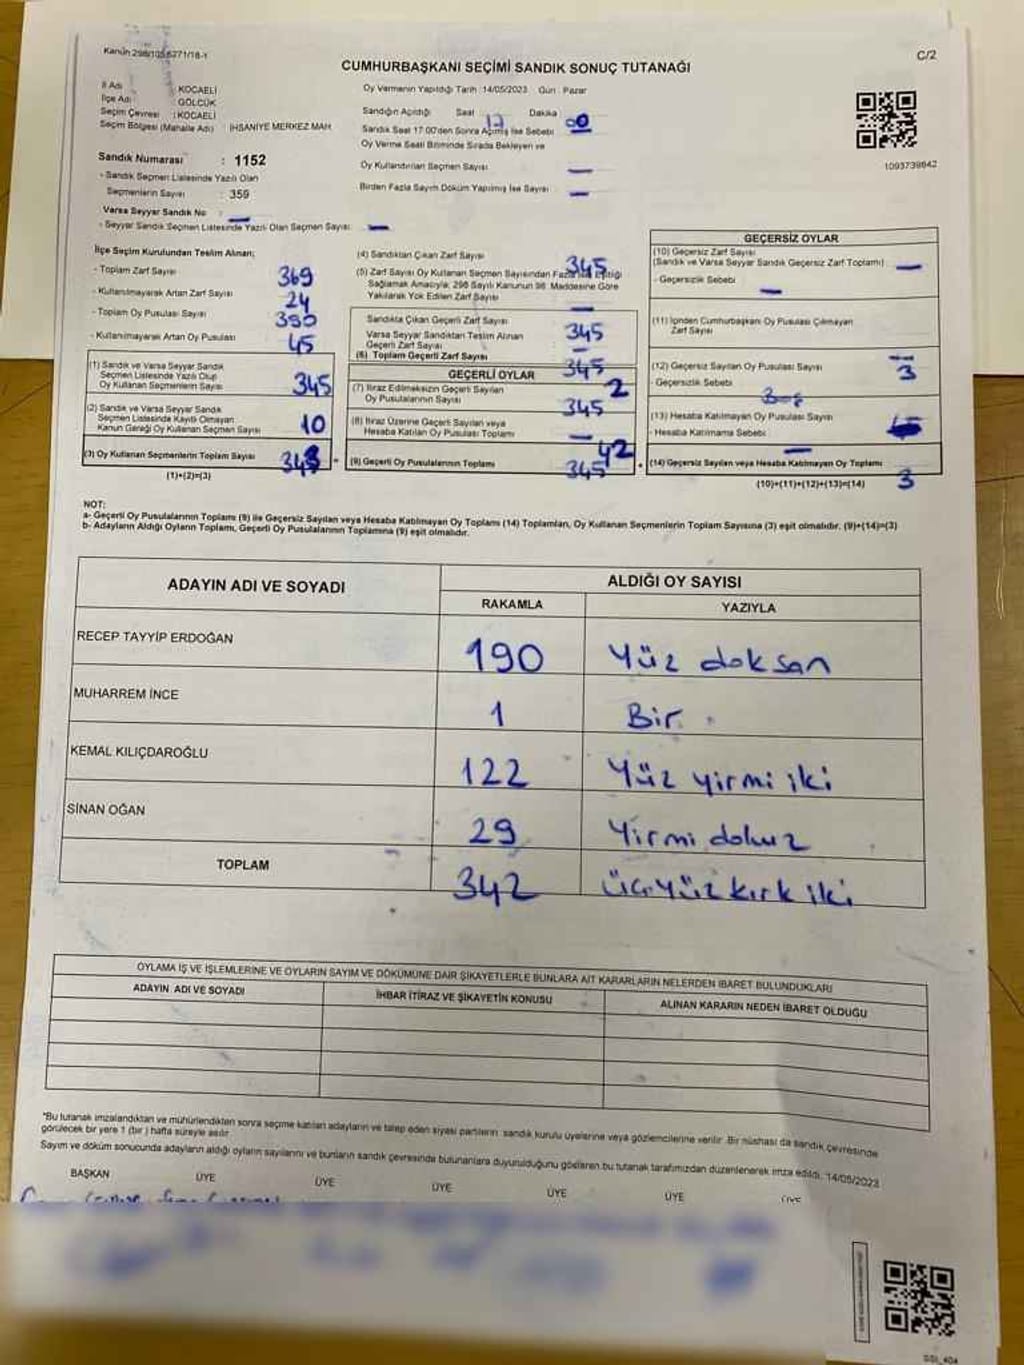 Kanun 298/105,6271/18-1
C/2
CUMHURBAŞKANI SEÇİMİ SANDIK SONUÇ TUTANAĞI
İl Adı : KOCAELİ
İlçe Adı : GÖLCÜK
Seçim Çevresi : KOCAELİ
Seçim Bölgesi (Mahalle Adı) : İHSANİYE MERKEZ MAH.
Sandık Numarası : 1152
- Sandık Seçmen Listesinde Yazılı Olan
Seçmenlerin Sayısı : 359
Varsa Seyyar Sandık No : —
- Seyyar Sandık Seçmen Listesinde Yazılı Olan Seçmen Sayısı : —
Oy Vermenin Yapıldığı Tarih : 14/05/2023 Gün : Pazar
Sandığın Açıldığı Saat 17 Dakika 00
Sandık Saat 17.00'den Sonra Açılmış İse Sebebi —
Oy Verme Saati Bitiminde Sırada Bekleyen ve
Oy Kullandırılan Seçmen Sayısı —
Birden Fazla Sayım Döküm Yapılmış İse Sayısı —
1093739642
İlçe Seçim Kurulundan Teslim Alınan;
- Toplam Zarf Sayısı 369
- Kullanılmayarak Artan Zarf Sayısı 24
- Toplam Oy Pusulası Sayısı 390
- Kullanılmayarak Artan Oy Pusulası 45
(1) Sandık ve Varsa Seyyar Sandık
Seçmen Listesinde Yazılı Olup
Oy Kullanan Seçmenlerin Sayısı 345
(2) Sandık ve Varsa Seyyar Sandık
Seçmen Listesinde Kayıtlı Olmayan
Kanun Gereği Oy Kullanan Seçmen Sayısı 10
(3) Oy Kullanan Seçmenlerin Toplam Sayısı
(1)+(2)=(3)
(4) Sandıktan Çıkan Zarf Sayısı 345
(5) Zarf Sayısı Oy Kullanan Seçmen Sayısından Fazla İse Eşitliği
Sağlamak Amacıyla, 298 Sayılı Kanunun 98. Maddesine Göre
Yakılarak Yok Edilen Zarf Sayısı —
Sandıkta Çıkan Geçerli Zarf Sayısı 345
Varsa Seyyar Sandıktan Teslim Alınan
Geçerli Zarf Sayısı —
(6) Toplam Geçerli Zarf Sayısı 345
GEÇERLİ OYLAR
(7) İtiraz Edilmeksizin Geçerli Sayılan
Oy Pusulalarının Sayısı 345 2
(8) İtiraz Üzerine Geçerli Sayılan veya
Hesaba Katılan Oy Pusulası Toplamı —
(9) Geçerli Oy Pusulalarının Toplamı 345 42
GEÇERSİZ OYLAR
(10) Geçersiz Zarf Sayısı
(Sandık ve Varsa Seyyar Sandık Geçersiz Zarf Toplamı) —
- Geçersizlik Sebebi —
(11) İçinden Cumhurbaşkanı Oy Pusulası Çıkmayan
Zarf Sayısı —
(12) Geçersiz Sayılan Oy Pusulası Sayısı 3
- Geçersizlik Sebebi
(13) Hesaba Katılmayan Oy Pusulası Sayısı
- Hesaba Katılmama Sebebi —
(14) Geçersiz Sayılan veya Hesaba Katılmayan Oy Toplamı 3
(10)+(11)+(12)+(13)=(14)
NOT:
a- Geçerli Oy Pusulalarının Toplamı (9) ile Geçersiz Sayılan veya Hesaba Katılmayan Oy Toplamı (14) Toplamları, Oy Kullanan Seçmenlerin Toplam Sayısına (3) eşit olmalıdır. (9)+(14)=(3)
b- Adayların Aldığı Oyların Toplamı, Geçerli Oy Pusulalarının Toplamına (9) eşit olmalıdır.
ADAYIN ADI VE SOYADI ALDIĞI OY SAYISI
RAKAMLA YAZIYLA
RECEP TAYYİP ERDOĞAN 190 Yüz doksan
MUHARREM İNCE 1 Bir
KEMAL KILIÇDAROĞLU 122 Yüz yirmi iki
SİNAN OĞAN 29 Yirmi dokuz
TOPLAM 342 üçyüz kırk iki
OYLAMA İŞ VE İŞLEMLERİNE VE OYLARIN SAYIM VE DÖKÜMÜNE DAİR ŞİKAYETLERLE BUNLARA AİT KARARLARIN NELERDEN İBARET BULUNDUKLARI
ADAYIN ADI VE SOYADI İHBAR İTİRAZ VE ŞİKAYETİN KONUSU ALINAN KARARIN NEDEN İBARET OLDUĞU
*Bu tutanak imzalandıktan ve mühürlendikten sonra seçime katılan adayların ve talep eden siyasi partilerin sandık kurulu üyelerine veya gözlemcilerine verilir. Bir nüshası da sandık çevresinde
görülecek bir yere 1 (bir) hafta süreyle asılır.
Sayım ve döküm sonucunda adayların aldığı oyların sayılarını ve bunların sandık çevresinde bulunanlara duyurulduğunu gösteren bu tutanak tarafımızdan düzenlenerek imza edildi. 14/05/2023
BAŞKAN ÜYE ÜYE ÜYE ÜYE ÜYE ÜYE